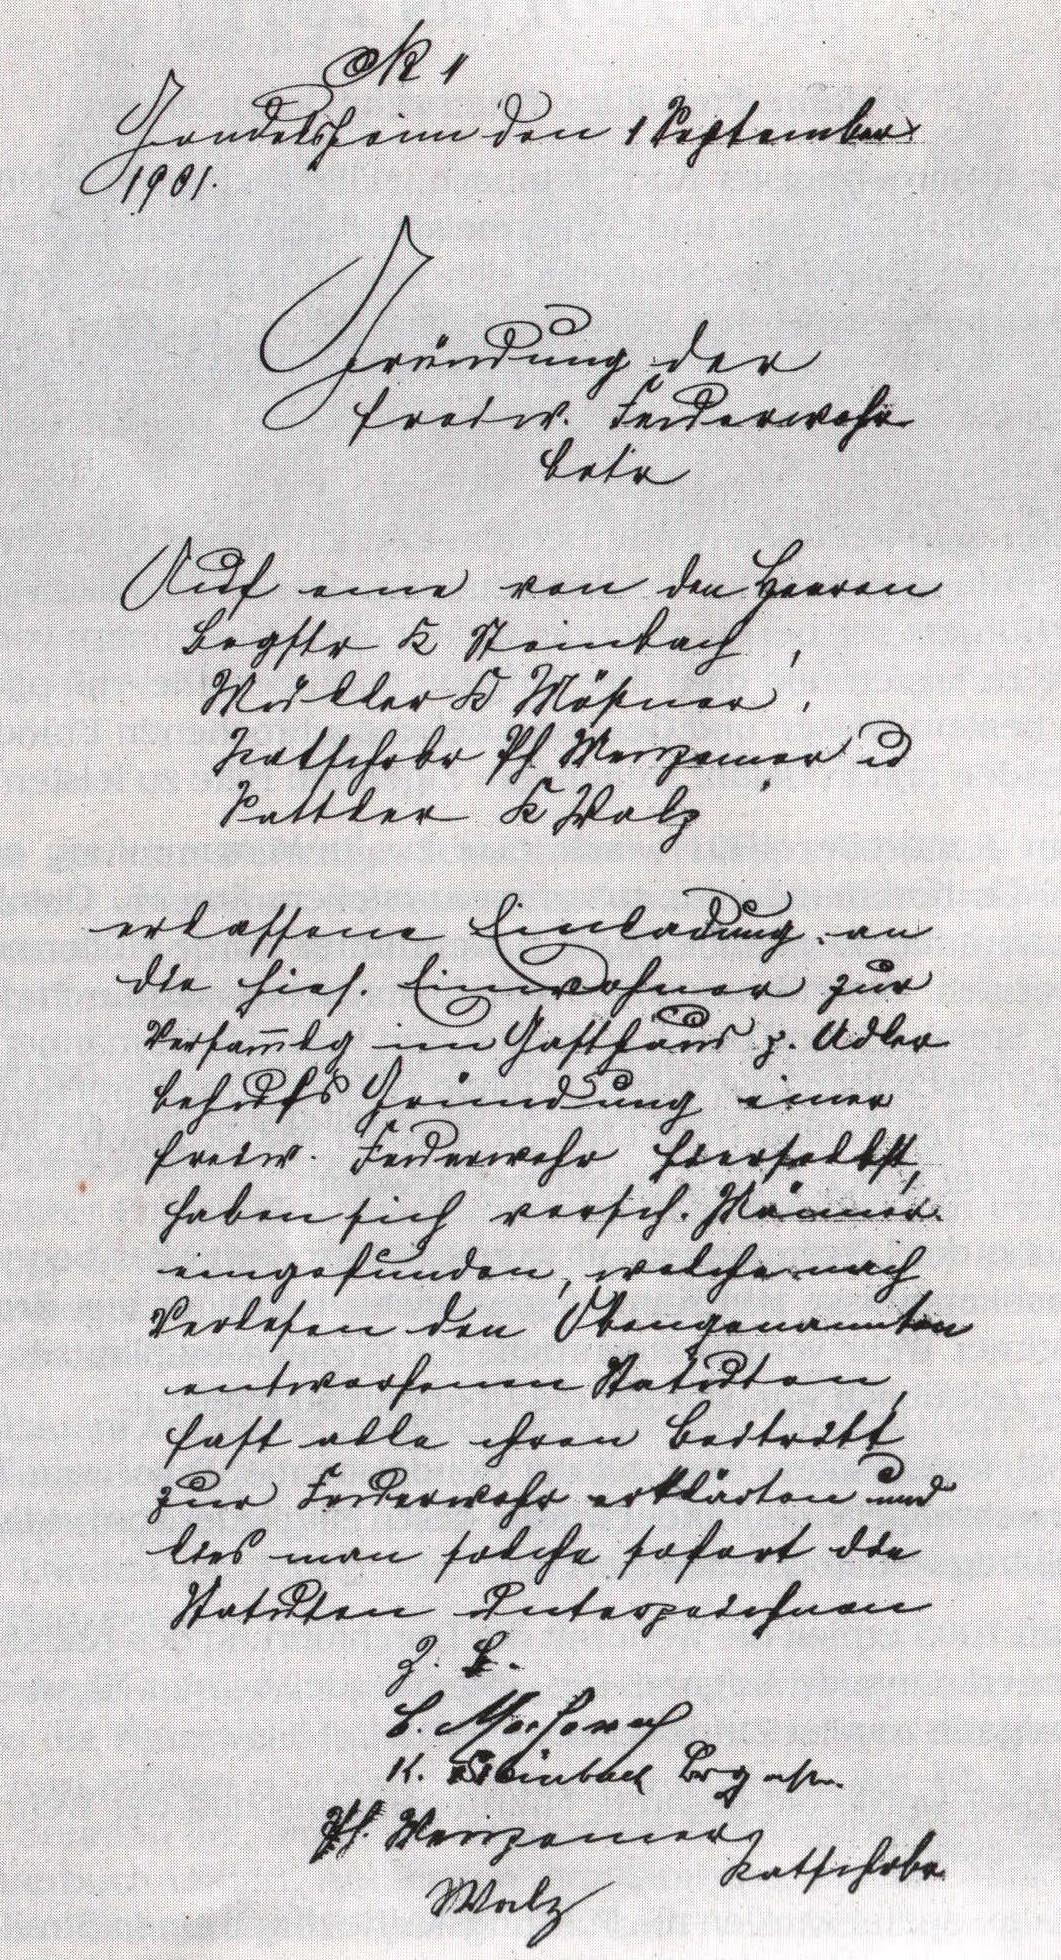 № 1
Gondelsheim den 1 September
1901.
Gründung der
freiw. Feuerwehr
betr
Auf eine von den Herren
Brgstr K Steinbach,
Müller K Mößner,
Ratschrbr Ph Menzemer u
Sattler K Walz
erlassene Einladung an
die hies. Einwohner zur
Versam̅lg im Gasthaus z. Adler
behufs Gründung einer
freiw. Feuerwehr hierselbst,
haben sich versch. Männer
eingefunden, welche nach
Verlesen den Obengenannten
entworfenen Statuten,
fast alle ihren Beitritt
zur Feuerwehr erklärten und
lies man solche sofort die
Statuten unterzeichnen
Z. B.
K. Steinbach Brgmstr.
Ph. Menzemer
Ratschrbr.
Walz